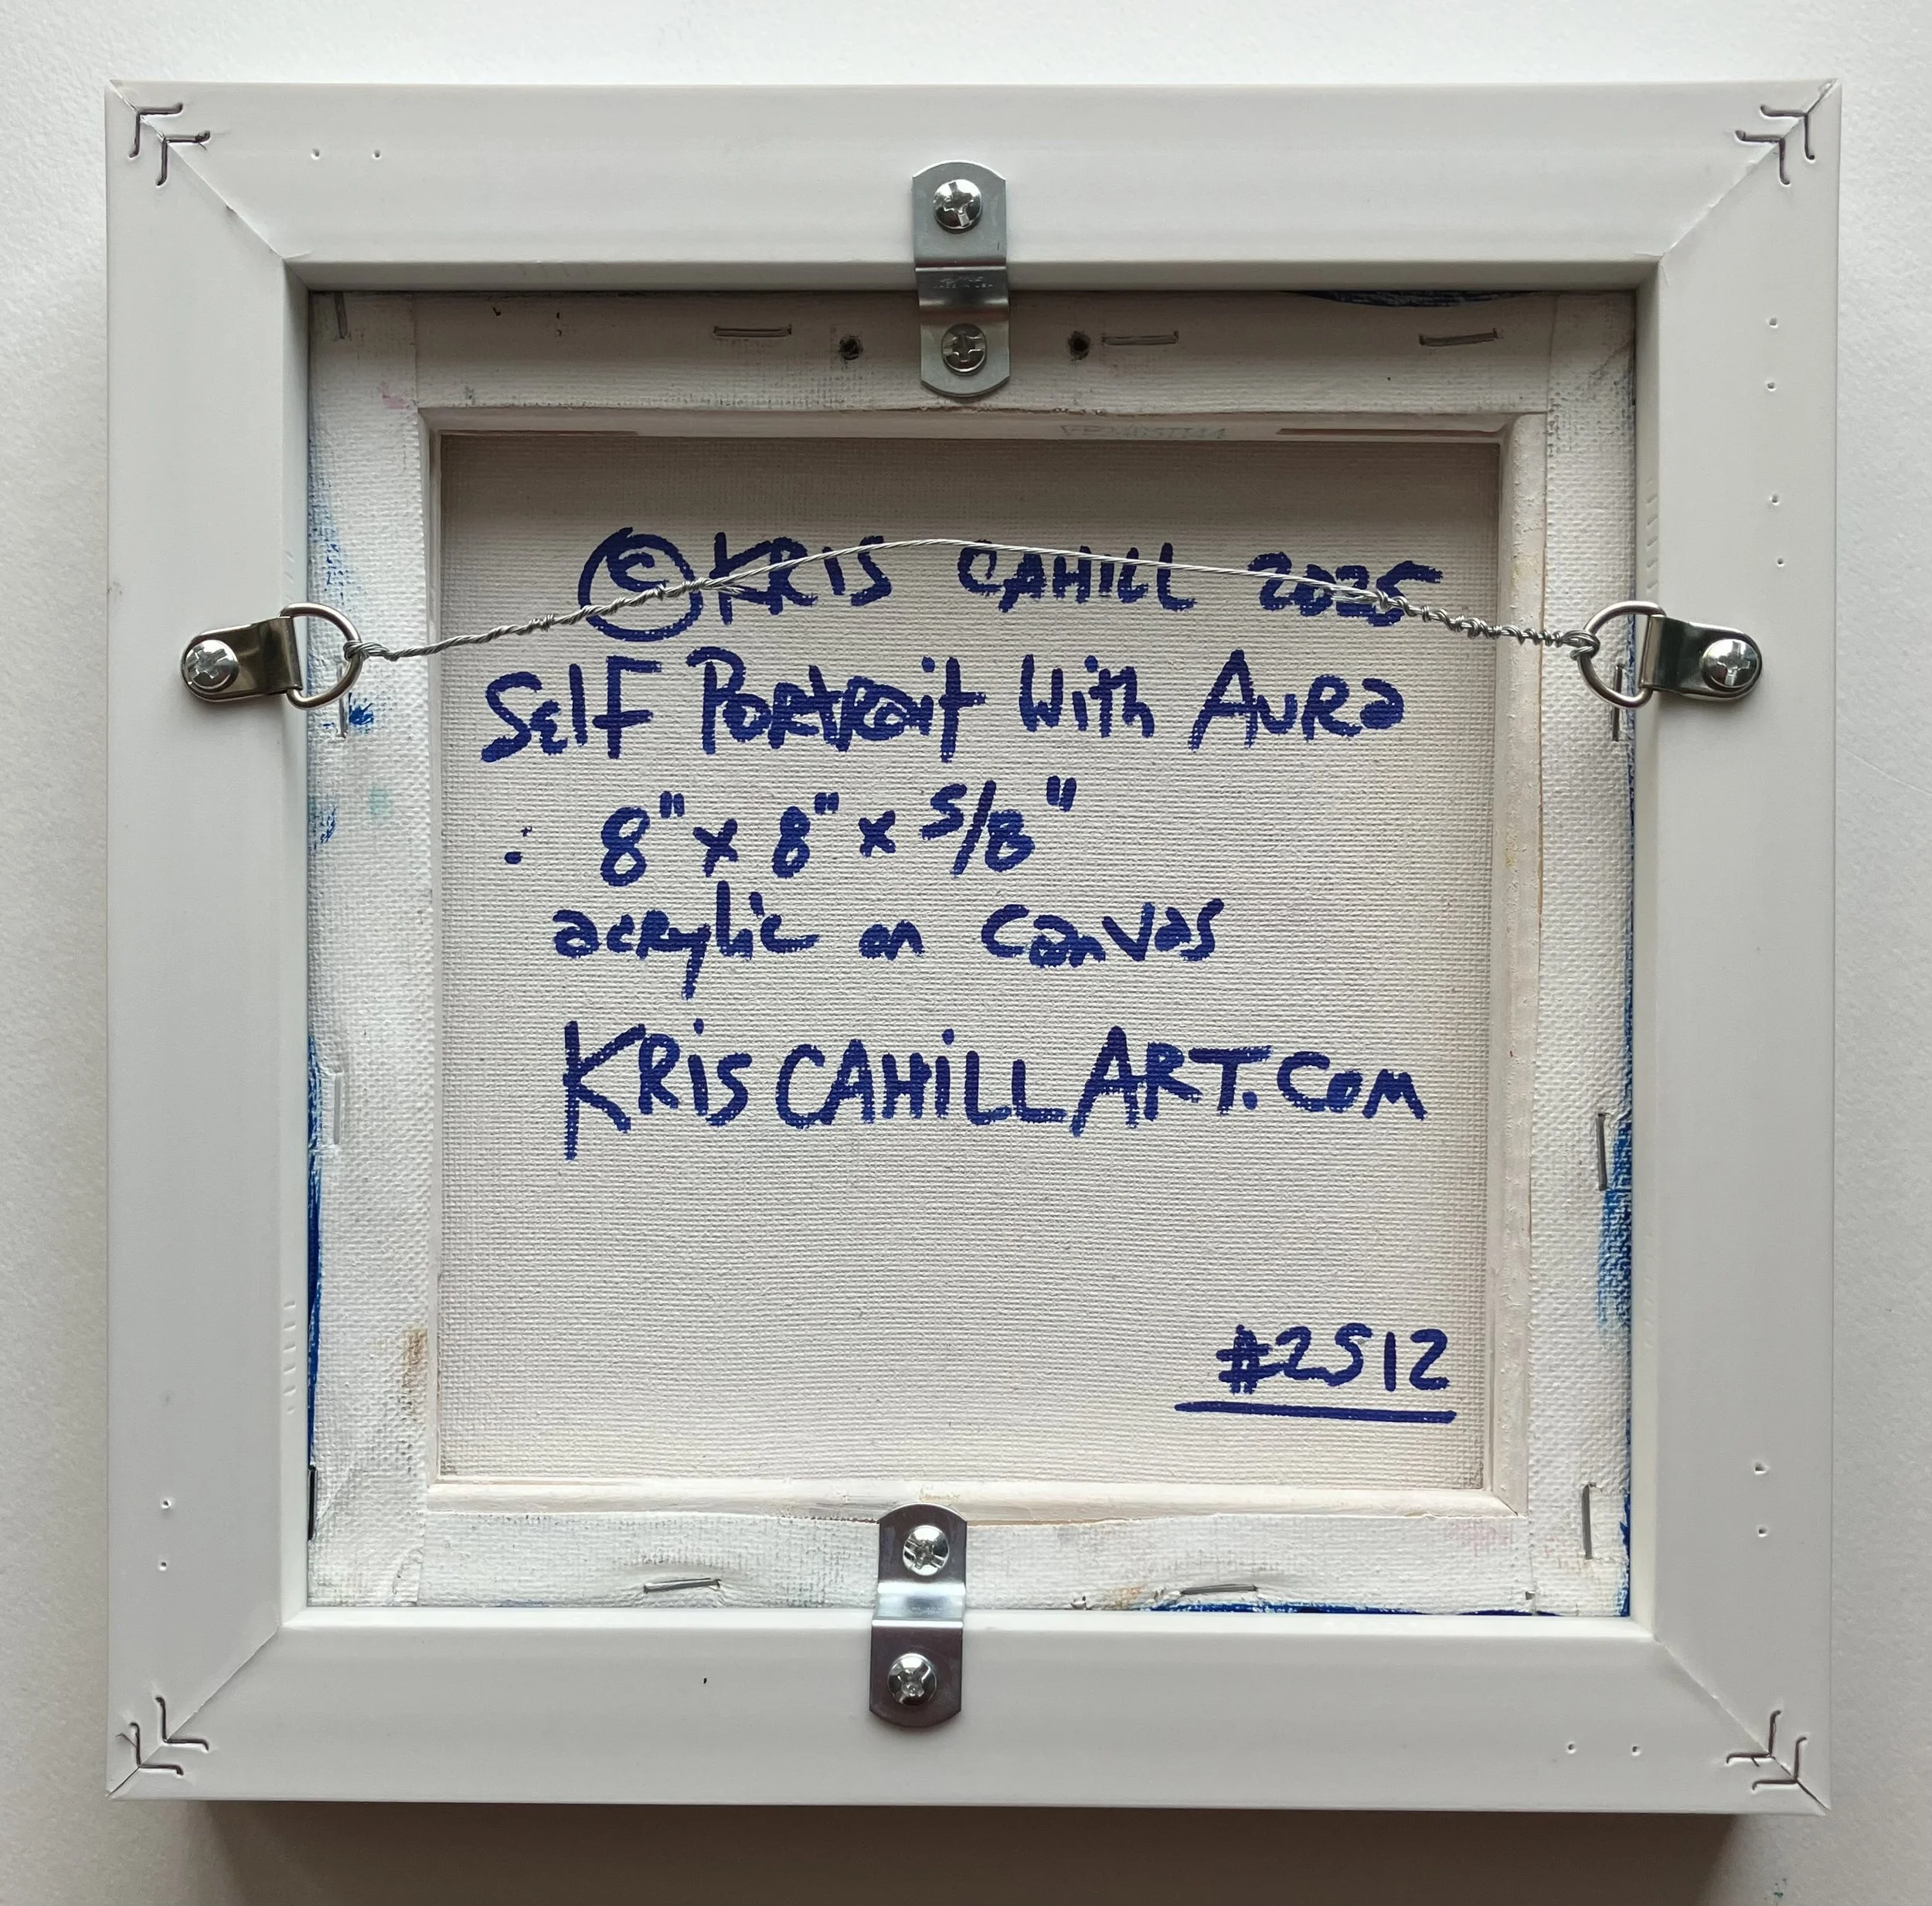 © KRIS CAHILL 2025
Self Portrait With Aura
8" x 8" x 5/8"
acrylic on canvas
KRISCAHILLART.COM
#2512